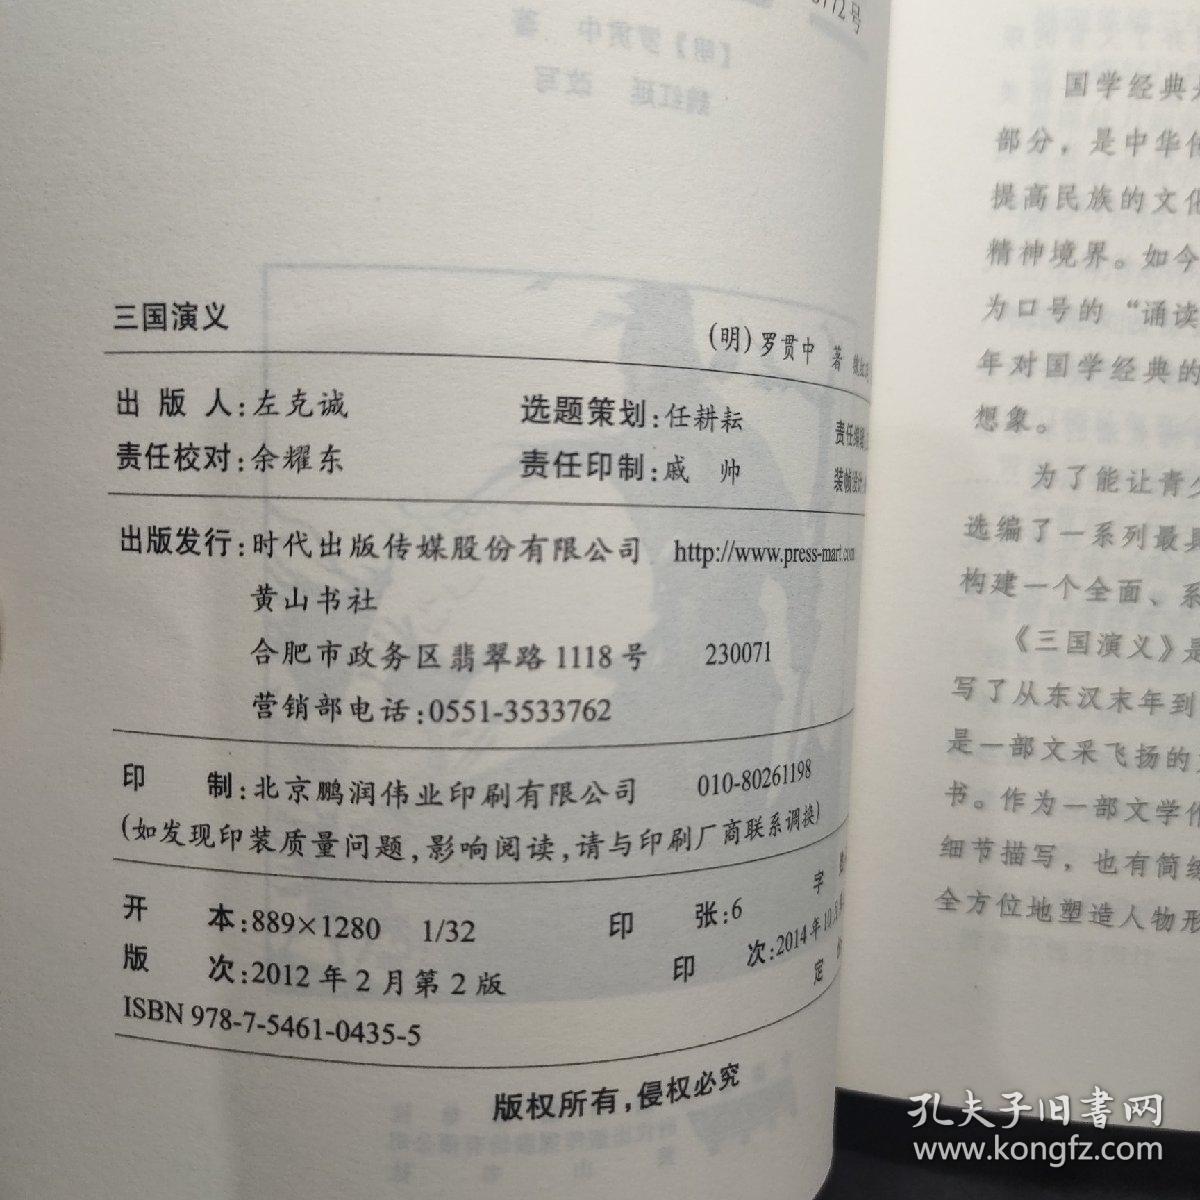 三国演义
(明)罗贯中 著
出 版 人:左克诚 选题策划:任耕耘 责任编辑
责任校对:余耀东 责任印制:戚 帅 装帧设计
出版发行:时代出版传媒股份有限公司 http://www.press-mart.com
黄山书社
合肥市政务区翡翠路1118号 230071
营销部电话:0551-3533762
印 制:北京鹏润伟业印刷有限公司 010-80261198
(如发现印装质量问题,影响阅读,请与印刷厂商联系调换)
开 本:889×1280 1/32 印 张:6 字
版 次:2012年2月第2版 印 次:2014年10月 定
ISBN 978-7-5461-0435-5
版权所有,侵权必究
国学经典是
部分，是中华
提高民族的文化
精神境界。如今
为口号的“诵读
年对国学经典的
想象。
为了能让青少
选编了一系列最具
构建一个全面、系
《三国演义》是
写了从东汉末年到
是一部文采飞扬的
书。作为一部文学作
细节描写，也有简练
全方位地塑造人物形
孔夫子旧书网
www.kongfz.com